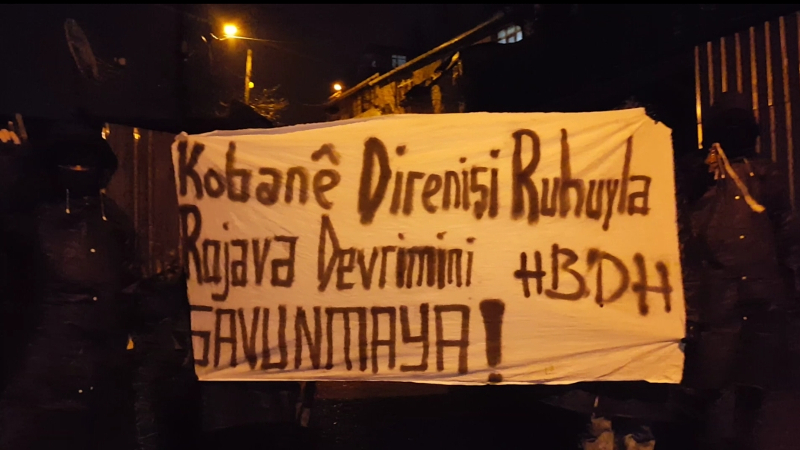 Kobanê Direnişi Ruhuyla
Rojava Devrimini HBDH
SAVUNMAYA!